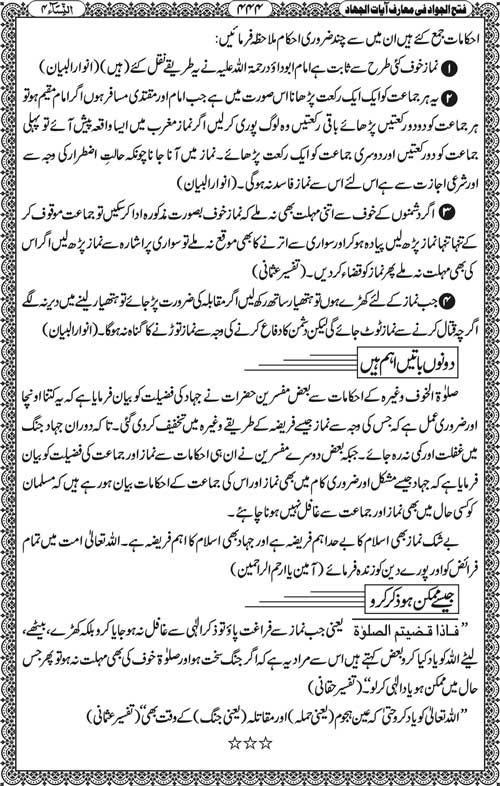 فتح الجواد فی معارف آیات الجہاد ۴۴۴ النساء ۴
احکامات جمع کئے ہیں ان میں سے چند ضروری احکام ملاحظہ فرمائیں:
۱ نماز خوف کئی طرح سے ثابت ہے امام ابوداؤد رحمۃ اللہ علیہ نے یہ طریقے نقل کئے (ہیں) (انوار البیان)
۲ یہ ہر جماعت کو ایک ایک رکعت پڑھانا اس صورت میں ہے جب امام اور مقتدی مسافر ہوں اگر امام مقیم ہو تو
ہر جماعت کو دو دو رکعتیں پڑھائے باقی رکعتیں وہ لوگ پوری کرلیں اگر نماز مغرب میں ایسا واقعہ پیش آئے تو پہلی
جماعت کو دو رکعتیں اور دوسری جماعت کو ایک رکعت پڑھائے۔ نماز میں آنا جانا چونکہ حالتِ اضطرار کی وجہ سے
اور شرعی اجازت سے ہے اس لئے اس سے نماز فاسد نہ ہوگی۔ (انوار البیان)
۳ اگر دشمنوں کے خوف سے اتنی مہلت بھی نہ ملے کہ نماز خوف بصورت مذکورہ ادا کرسکیں تو جماعت موقوف کر
کے تنہا تنہا نماز پڑھ لیں پیادہ ہوکر اور سواری سے اترنے کا بھی موقع نہ ملے تو سواری پر اشارہ سے پڑھ لیں اگر اس
کی بھی مہلت نہ ملے پھر نماز کو قضاء کردیں۔ (تفسیر عثمانی)
۴ جب نماز کے لئے کھڑے ہوں تو ہتھیار ساتھ رکھ لیں اگر مقابلہ کی ضرورت پڑجائے تو ہتھیار لینے میں دیر نہ لگے
اگرچہ قتال کرنے سے نماز ٹوٹ جائے گی لیکن دشمن کا دفاع کرنے کی وجہ سے نماز توڑنے کا گناہ نہ ہوگا۔ (انوار البیان)
دونوں باتیں اہم ہیں
صلوٰۃ الخوف وغیرہ کے احکامات سے بعض مفسرین حضرات نے جہاد کی فضیلت کو بیان فرمایا ہے کہ یہ کتنا اونچا
اور ضروری عمل ہے کہ جس کی وجہ سے نماز جیسے فریضہ کے طریقے وغیرہ میں تخفیف کردی گئی۔ تاکہ دوران جہاد جنگ
میں غفلت اور کمی نہ رہ جائے۔ جبکہ بعض دوسرے مفسرین نے ان ہی احکامات سے نماز اور جماعت کی فضیلت کو بیان
فرمایا ہے کہ جہاد جیسے مشکل اور ضروری کام میں بھی نماز اور اس کی جماعت کے احکامات بیان ہورہے ہیں کہ مسلمان
کو کسی حال میں بھی نماز اور جماعت سے غافل نہیں ہونا چاہئے۔
بے شک نماز بھی اسلام کا بے حد اہم فریضہ ہے اور جہاد بھی اسلام کا اہم فریضہ ہے۔ اللہ تعالیٰ امت میں تمام
فرائض کو اور پورے دین کو زندہ فرمائے (آمین یا ارحم الراحمین)
جیسے ممکن ہو ذکر کرو
”فاذا قضیتم الصلوٰۃ یعنی جب نماز سے فراغت پاؤ تو ذکر الٰہی سے غافل نہ ہوجایا کرو بلکہ کھڑے، بیٹھے،
لیٹے اللہ کو یاد کیا کرو بعض کہتے ہیں اس سے مراد یہ ہے کہ اگر جنگ سخت ہو اور صلوٰۃ خوف کی بھی مہلت نہ ہو تو پھر جس
حال میں ممکن ہو یاد الٰہی کرلو“۔ (تفسیر حقانی)
”اللہ تعالیٰ کو یاد کرو حتیٰ کہ عین ہجوم (یعنی حملہ) اور مقاتلہ (یعنی جنگ) کے وقت بھی“ (تفسیر عثمانی)
☆☆☆